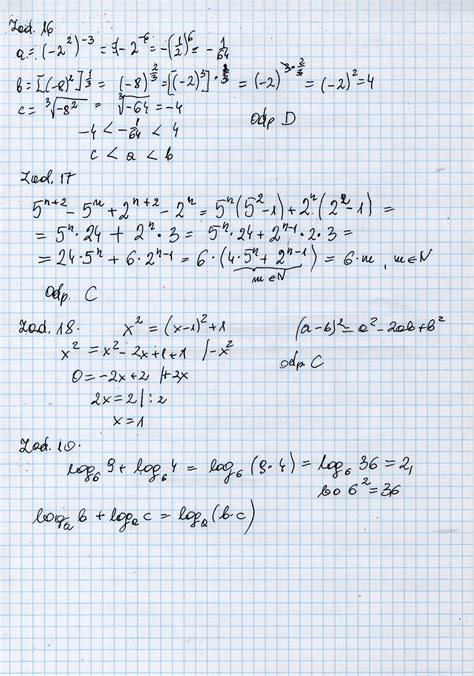 Zad. 16
a = (-2²)⁻³ = -2⁻⁶ = -(1/2)⁶ = -1/64
b = [(-8)²]^(1/3) = (-8)^(2/3) = [(-2)³]^(2/3) = (-2)^(3·2/3) = (-2)² = 4
c = ∛(-8²) = ∛(-64) = -4
-4 < -1/64 < 4
odp D
c < a < b
Zad. 17
5ⁿ⁺² - 5ⁿ + 2ⁿ⁺² - 2ⁿ = 5ⁿ(5² - 1) + 2ⁿ(2² - 1) =
= 5ⁿ · 24 + 2ⁿ · 3 = 5ⁿ · 24 + 2ⁿ⁻¹ · 2 · 3 =
= 24 · 5ⁿ + 6 · 2ⁿ⁻¹ = 6 · (4 · 5ⁿ + 2ⁿ⁻¹) = 6 · m, m ∈ N
m ∈ N
odp. C
Zad. 18. x² = (x-1)² + 1 (a-b)² = a² - 2ab + b²
x² = x² - 2x + 1 + 1 | -x²
odp. C
0 = -2x + 2 | +2x
2x = 2 | : 2
x = 1
Zad. 10.
log₆ 9 + log₆ 4 = log₆ (9 · 4) = log₆ 36 = 2,
bo 6² = 36
logₐ b + logₐ c = logₐ (b · c)